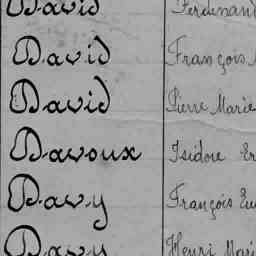 David Ferdinand
David François
David Pierre Marie
Davoux Isidore
Davy François
Davy Henri